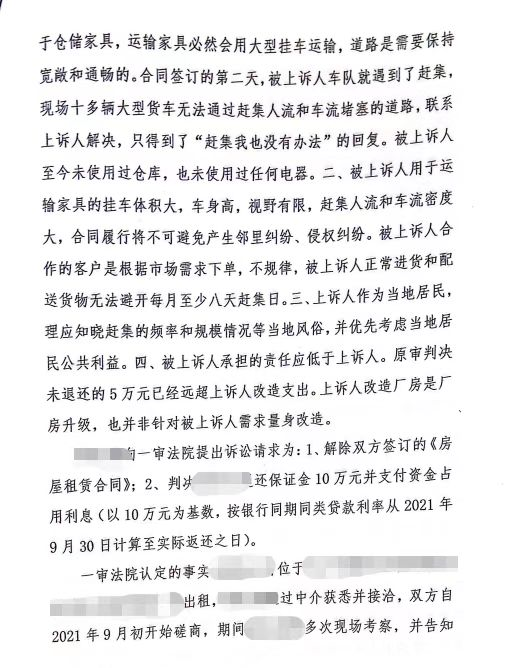 于仓储家具，运输家具必然会用大型挂车运输，道路是需要保持
宽敞和通畅的。合同签订的第二天，被上诉人车队就遇到了赶集，
现场十多辆大型货车无法通过赶集人流和车流堵塞的道路，联系
上诉人解决，只得到了“赶集我也没有办法”的回复。被上诉人
至今未使用过仓库，也未使用过任何电器。二、被上诉人用于运
输家具的挂车体积大，车身高，视野有限，赶集人流和车流密度
大，合同履行将不可避免产生邻里纠纷、侵权纠纷。被上诉人合
作的客户是根据市场需求下单，不规律，被上诉人正常进货和配
送货物无法避开每月至少八天赶集日。三、上诉人作为当地居民，
理应知晓赶集的频率和规模情况等当地风俗，并优先考虑当地居
民公共利益。四、被上诉人承担的责任应低于上诉人。原审判决
未退还的5万元已经远超上诉人改造支出。上诉人改造厂房是厂
房升级，也并非针对被上诉人需求量身改造。
向一审法院提出诉讼请求为：1、解除双方签订的《房
屋租赁合同》；2、判决 还保证金10万元并支付资金占
用利息（以10万元为基数，按银行同期同类贷款利率从2021年
9月30日计算至实际返还之日）。
一审法院认定的事实 位于
出租， 过中介获悉并接洽，双方自
2021年9月初开始磋商，期间 多次现场考察，并告知